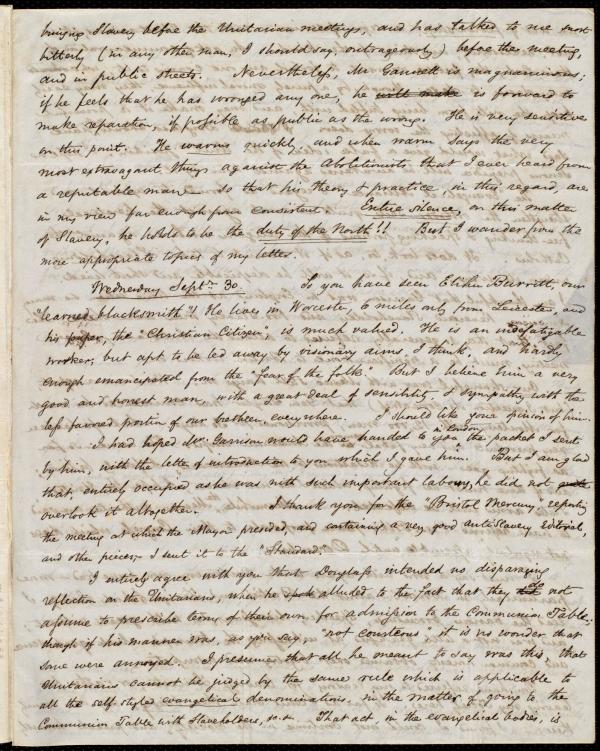 bringing Slavery before the Unitarian meetings, and has talked to me most
bitterly (in any other man, I should say, outrageously) before the meeting,
and in public streets. Nevertheless, Mr Gannett is magnanimous;
if he feels that he has wronged any one, he will make is forward to
make reparation, if possible as public as the wrong. He is very sensitive
on this point. He warms quickly, and when warm says the very
most extravagant things against the Abolitionists that I ever heard from
a reputable man – so that his theory & practice, in this regard, are
in my view far enough from consistent. Entire silence, on this matter
of Slavery, he holds to be the duty of the North!! But I wander from the
more appropriate topics of my letter.
Wednesday Septr. 30. So you have seen Elihu Burritt, our
"learned blacksmith"! He lives in Worcester, 6 miles only from Leicester, and
his paper, the "Christian Citizen", is much valued. He is an indefatigable
worker; but apt to be led away by visionary aims, I think, and hardly
enough emancipated from the "fear of the folk." But I believe him a very
good and honest man, with a great deal of sensibility, & sympathy with the
less favored portion of our brethren, everywhere. I should like your opinion of him.
I had hoped Mr. Garrison would have handed to you in London the packet I sent
by him, with the letter of introduction to you which I gave him. But I am glad
that, entirely occupied as he was with such important labours, he did not quite
overlook it altogether. I thank you for the "Bristol Mercury", reporting
the meeting at which the Mayor presided, and containing a very good Anti Slavery Editorial,
and other pieces;– I sent it to the "Standard."
I entirely agree with you that Douglass intended no disparaging
reflection on the Unitarians, when he spoke alluded to the fact that they do not
assume to prescribe terms of their own for admission to the Communion Table;
though if his manner was, as you say, "not courteous", it is no wonder that
some were annoyed. I presume that all he meant to say was this, that
Unitarians cannot be judged by the same rule which is applicable to
all the self-styled evangelical denominations, in the matter of going to the
Communion Table with Slaveholders, &c. &c. That act, in the evangelical bodies, is